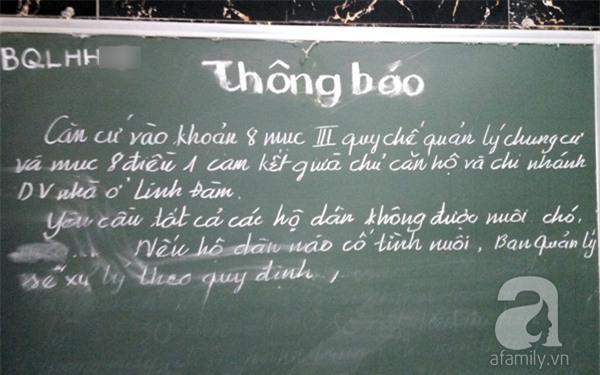 BQLHH
Thông báo
Căn cứ vào khoản 8 mục III quy chế quản lý chung cư
và mục 8 điều 1 cam kết giữa chủ căn hộ và chi nhánh
DV nhà ở Linh Đàm.
Yêu cầu tất cả các hộ dân không được nuôi chó.
.... Nếu hộ dân nào cố tình nuôi, Ban quản lý
sẽ xử lý theo quy định,
a
afamily.vn